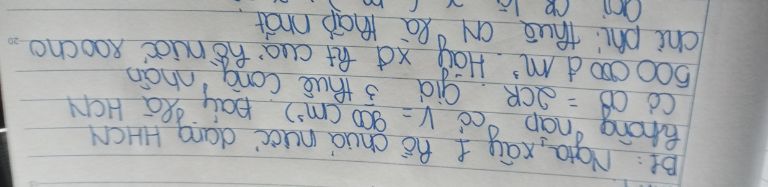 B1: Ngta xây 1 hồ chứa nước dạng HHCN
không nắp có V = 900 (m³) Đáy là HCN
có CD = 2CR. Giá thuê công nhân
500 000 đ/m². Hãy xđ kt của hồ nước sao cho
chi phí thuê CN là thấp nhất.
Gọi CR là x